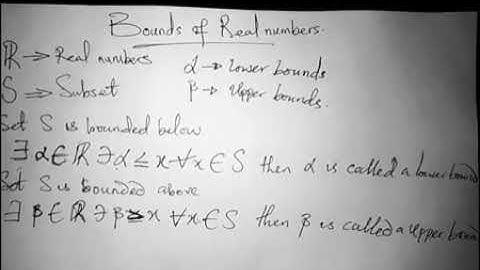 Bounds of Real numbers.
ℝ ⇒ Real numbers α → Lower bounds
S ⇒ Subset β → Upper bounds.
Set S is bounded below
∃ α ∈ ℝ ∋ α ≤ x ∀ x ∈ S then α is called a lower bound
Set S is bounded above
∃ β ∈ ℝ ∋ β ≥ x ∀ x ∈ S then β is called a upper bound